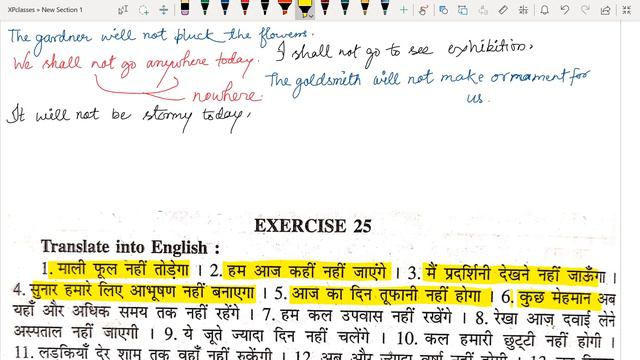 XPclasses » New Section 1
The gardner will not pluck the flowers.
I shall not go to see exhibition.
We shall not go anywhere today.
nowhere.
The goldsmith will not make ornament for
us.
It will not be stormy today.
EXERCISE 25
Translate into English :
1. माली फूल नहीं तोड़ेगा । 2. हम आज कहीं नहीं जाएंगे । 3. मैं प्रदर्शिनी देखने नहीं जाऊँगा ।
4. सुनार हमारे लिए आभूषण नहीं बनाएगा । 5. आज का दिन तूफानी नहीं होगा । 6. कुछ मेहमान अब
यहाँ और अधिक समय तक नहीं रहेंगे । 7. हम कल उपवास नहीं रखेंगे । 8. रेखा आज दवाई लेने
अस्पताल नहीं जाएगी । 9. ये जूते ज्यादा दिन नहीं चलेंगे । 10. कल हमारी छुट्टी नहीं होगी ।
11. लड़कियाँ देर शाम तक वहाँ नहीं रुकेंगी । 12. अब और ज्यादा वर्षा नहीं होगी । 13.